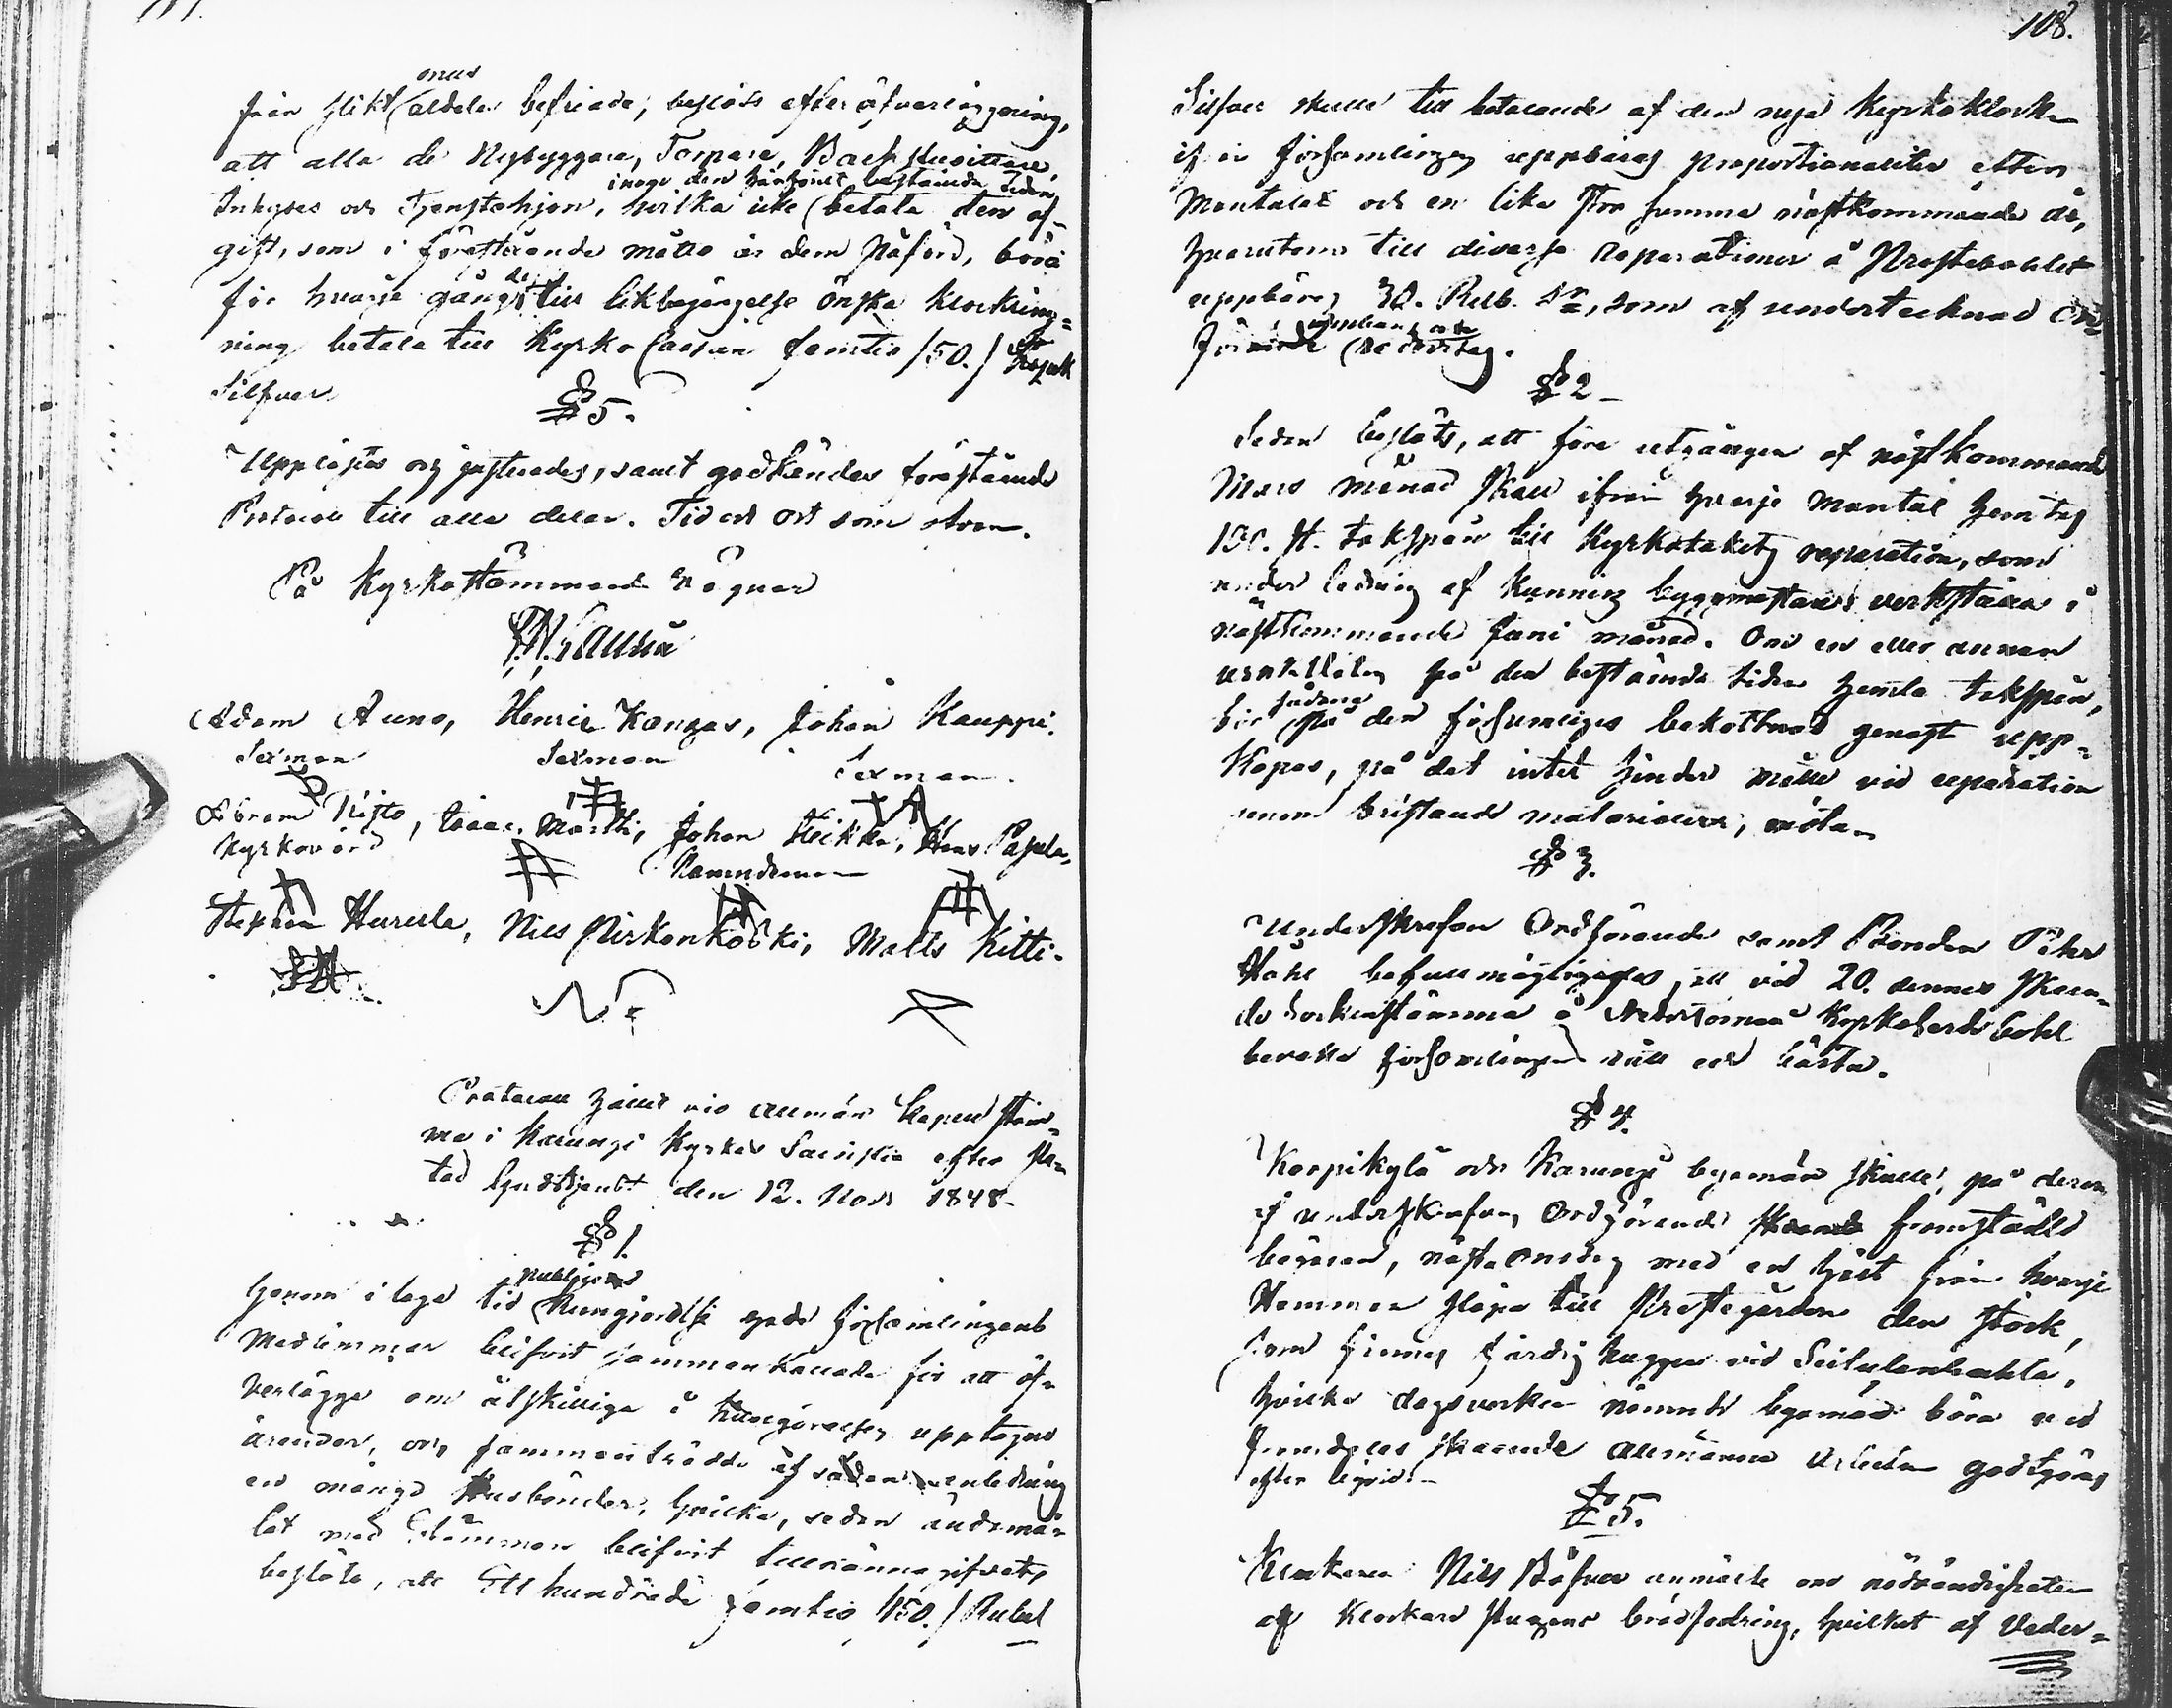 onus
från slikt aldeles befriade, beslöts efter öfverläggning,
att alla de Nybyggare, Torpare, Backstusittare,
inom den härförut bestämda tiden
Inhyses och Tjenstehjon, hvilka icke betala den af-
gift, som i föreståënde måtto är dem påförd, böra
de
för hvarje gång till likbegängelse önska klockring-
ning betala till Kyrko Cassan femtio /50./ Kopek
Silfver.
§ 5.
Upplästes och justerades, samt godkändes förestående
Protocoll till alla delar. Tid och ort som ofvan.
På Kyrkostämmans vägnar
Adam Auno, Henric Kangas, Johan Kauppi.
Sexman Sexman Sexman.
Abram Risto, Isaac Martti, Johan Heikka, Hans Papula,
Kyrkovärd Nämndeman
Stephan Hurula, Nils Pirkonkoski, Matts Kitti.
Protocoll hållit vid allmän Kapell stäm-
ma i Karungi Kyrkas Sacristia efter slu-
tad Gudstjenst den 12. Nov. 1848.
§ 1.
publicerad
Genom i laga tid Kungjordelse hade församlingens
Medlemmar blifvit sammankallade för att öf-
verlägga om åtskilliga i kungörelsen upptagne
ärender, och sammanträdde af sådan anledning
en mängd Husbönder, hvilka, sedan ändamå-
let med Stämman blifvit tillkännagifvet,
beslöto, att Ett hundrade femtio /150./ Rubel
108.
Silfver skulle till betalande af den nya Kyrkoklockan
ifrån församlingen uppbäras proportionaliter efter
Mantalet och en lika stor summa nästkommande år,
hvarutom till diverse reparationer å Prestebohlet
uppbäres 30. Rub. Sr, som af undertecknad Ord-
förande
§ 2
Sedan beslöts, att före utgången af nästkommande
Mars månad skall ifrån hvarje Mantal hemtas
150. st. takspån till Kyrkotakets reparation, som
under ledning af kunnig byggmästare verkställas i
nästkommande Juni månad. Om en eller annan
på den bestämda tiden hemta takspån,
sådana
bör på den försumliges bekostnad genast upp-
köpas, på det intet hinder måtte vid reparation
genom bristande materialier, möta.
§ 3.
Underskrefven Ordförande samt Bonden Pehr
Hahl befullmägtigades att vid 20. dennes skeen-
de Sockenstämma å Nedertorneå Kyrkoherdebohl
bevaka församlingens rätt och bästa.
§ 4.
Korpikylä och Karungi byamän skulle, på deras
af underskrefven Ordförande framstälde
begäran, nästa onsdag med en häst från hvarje
Hemman släpa till Prestegården den stock,
som finnes färdig huggen vid
hvilka dagsverken nämnde byamän böra vid
framdeles skeende allmänna Arbeten godtgöras
efter liqvid.
§ 5.
Klockaren Nils Bäfver anmälte om nödvändigheten
af Klockare stugans brädfodring, hvilket af Veder-